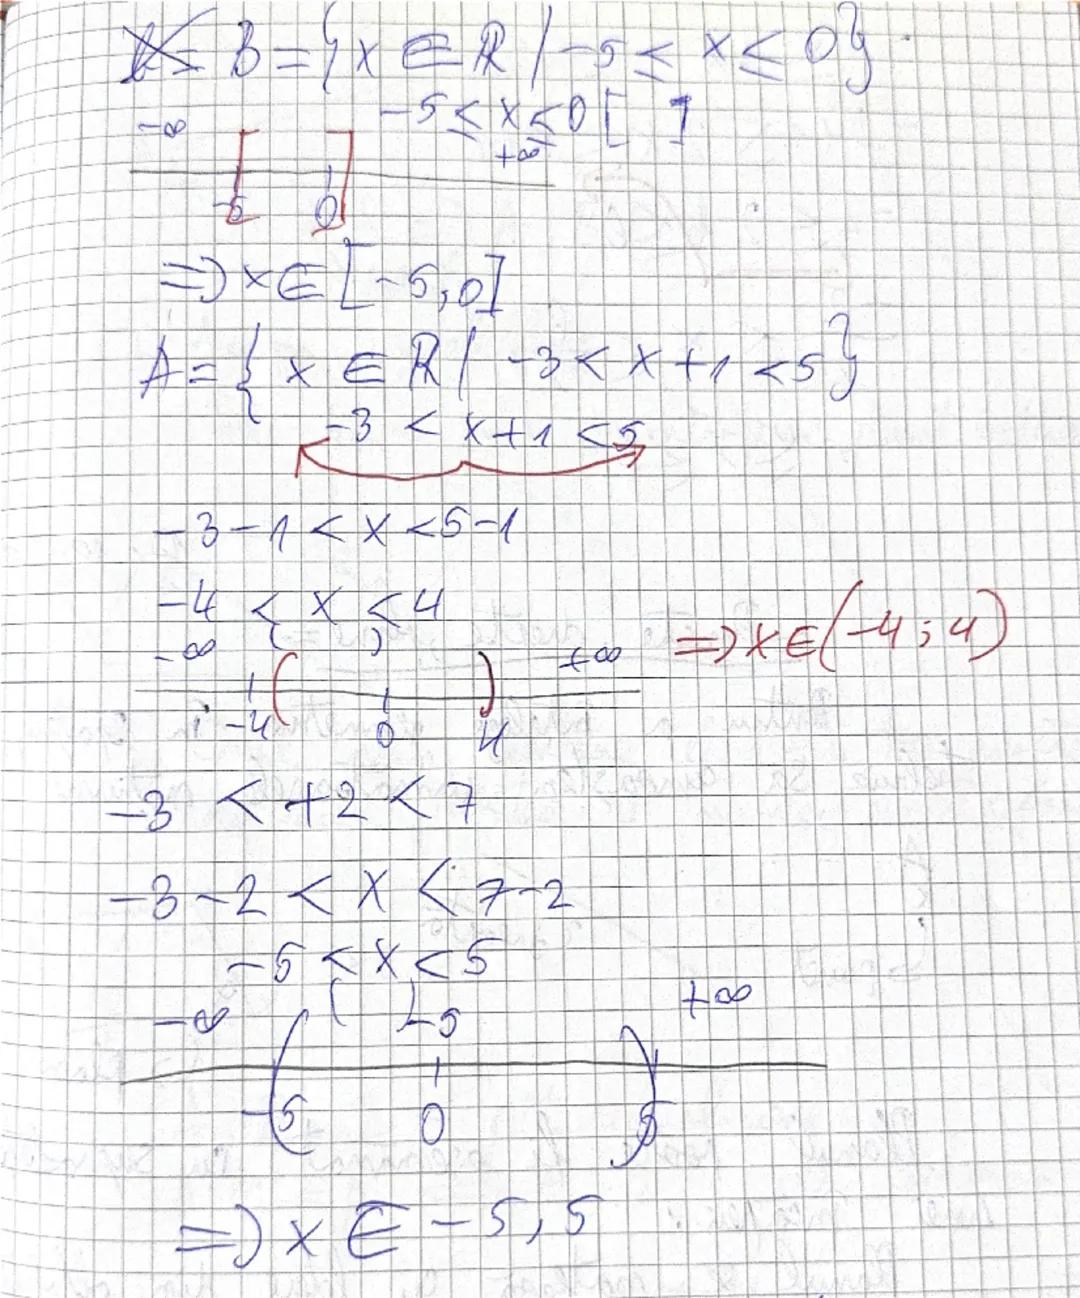 B = {x ∈ ℝ / -5 ≤ x ≤ 0}
-5 ≤ x ≤ 0 [ ]
-∞ +∞
-5 0
=> x ∈ [-5, 0]
A = { x ∈ ℝ / -3 < x + 1 < 5}
-3 < x + 1 < 5
-3 - 1 < x < 5 - 1
-4 < x < 4
( )
=> x ∈ (-4 ; 4)
-∞ ( ) +∞
-4 0 4
-3 < +2 < 7
-3 - 2 < x < 7 - 2
-5 < x < 5
-∞ ( +∞
( )
-5 0 5
=> x ∈ -5, 5